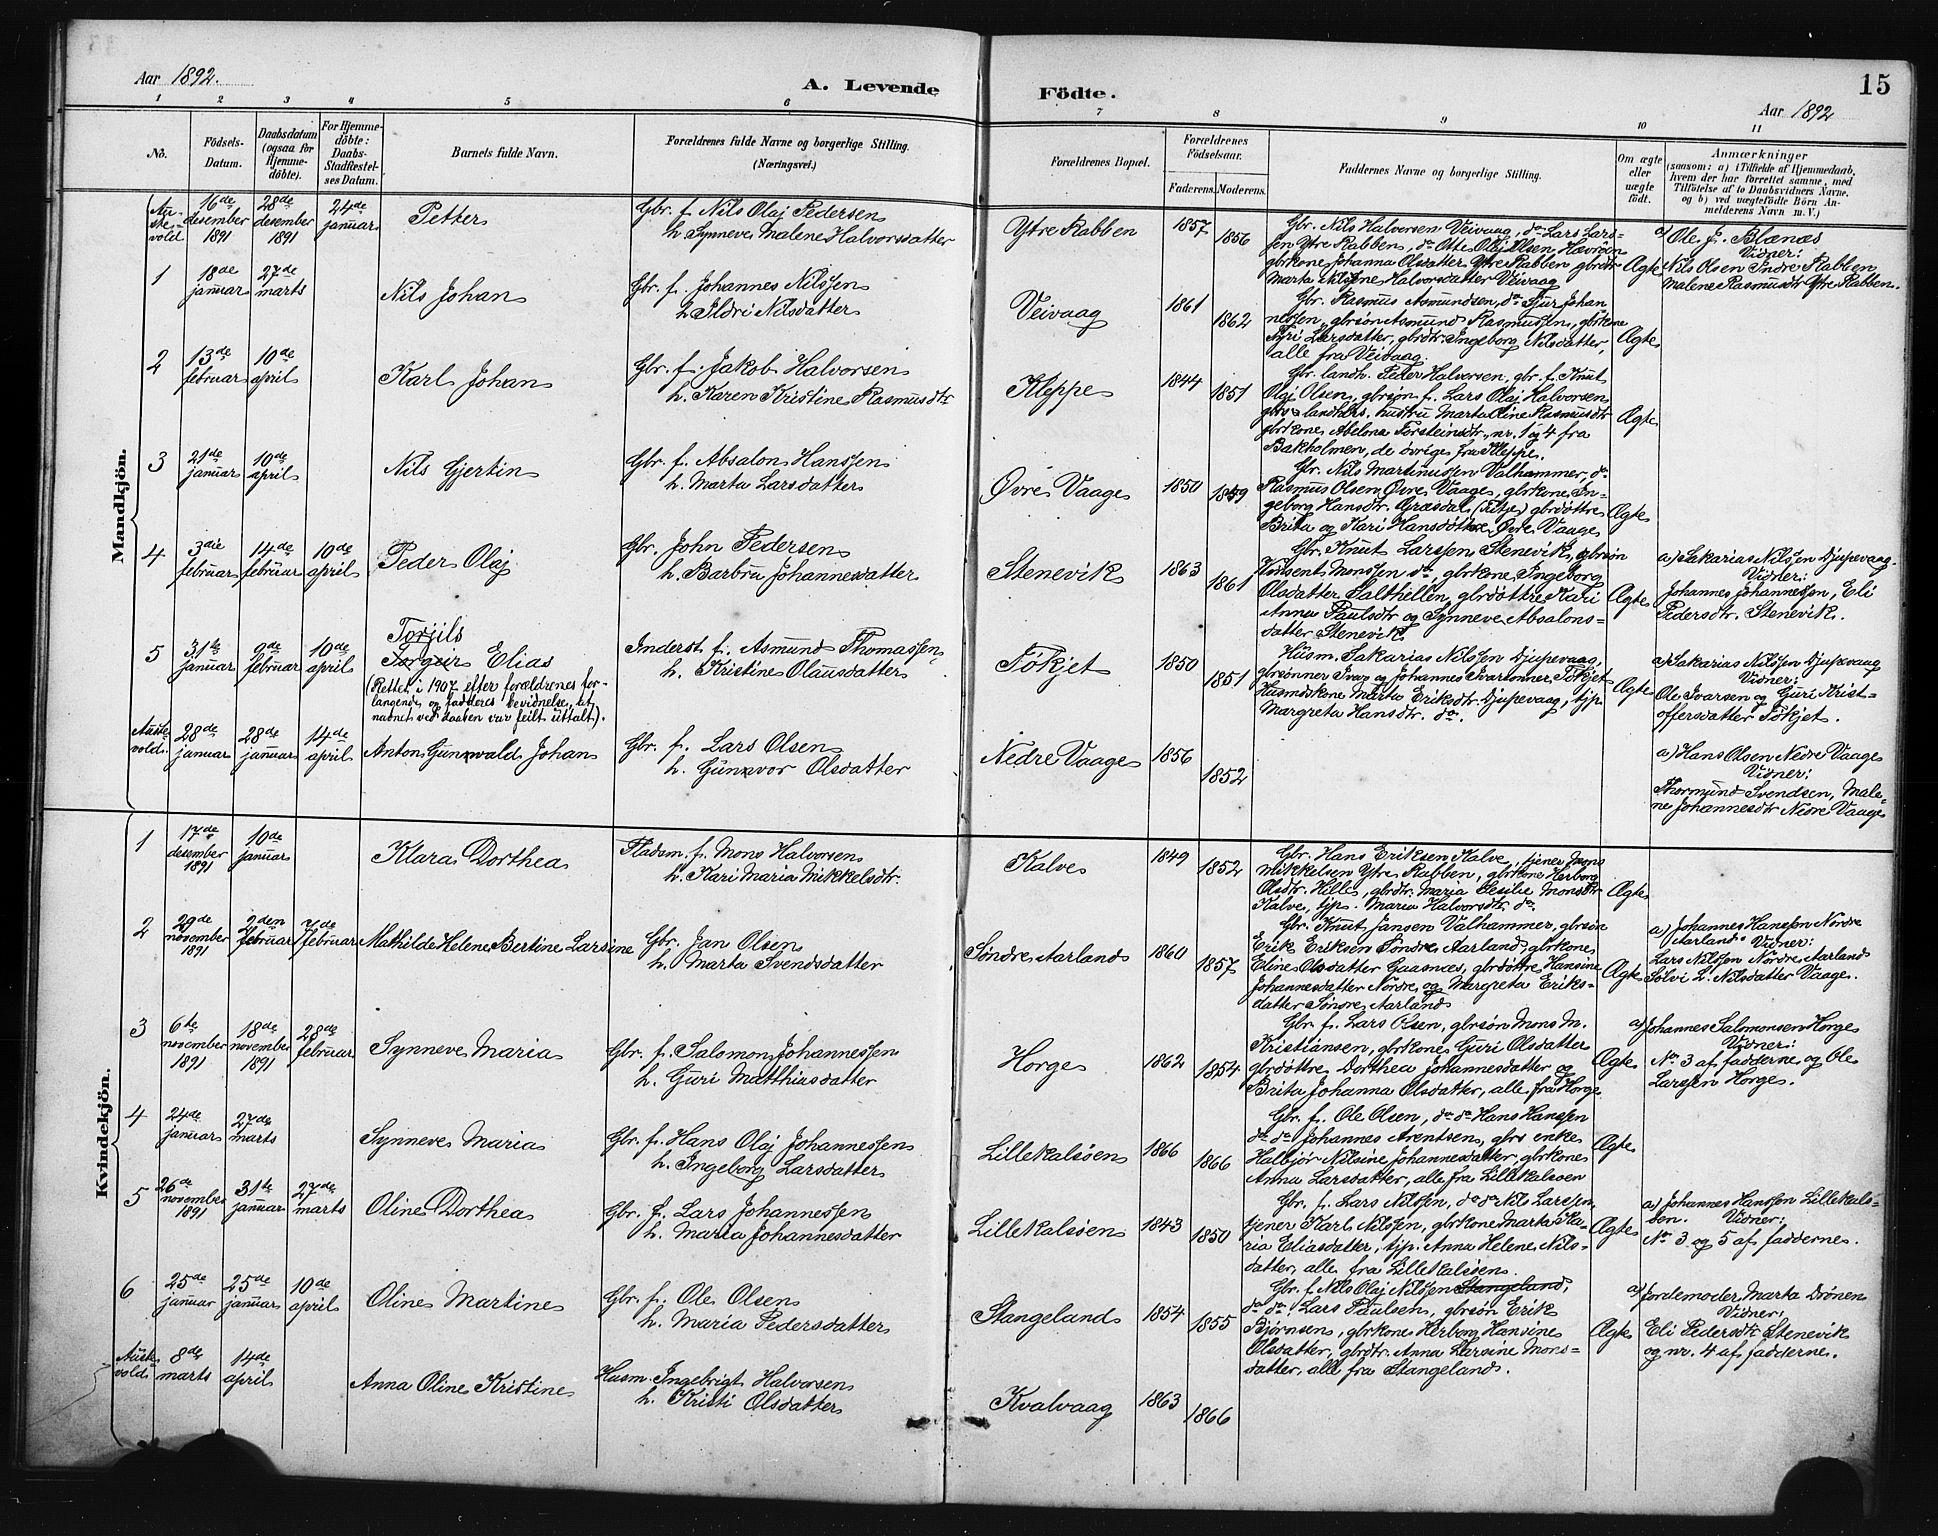 Aar 1892.
A. Levende Födte.
15
Aar 1892
1 2 3 4 5 6 7 8 9 10 11
No.
Födsels-
Datum.
Daabsdatum
(ogsaa for
Hjemme-
döbte).
For Hjemme-
döbte:
Daabs-
Stadfestel-
ses Datum.
Barnets fulde Navn.
Forældrenes fulde Navne og borgerlige Stilling.
(Næringsvei.)
Forældrenes Bopæl.
Forældrenes
Födselsaar.
Faderens. Moderens.
Faddernes Navne og borgerlige Stilling.
Om ægte
eller
uægte
födt.
Anmærkninger
(saasom: a) i Tilfælde af Hjemmedaab,
hvem der har forrettet samme, med
Tilföielse af to Daabsvidners Navne,
og b) ved uægtefödte Börn An-
melderens Navn m. V.)
Mandkjön.
Au-
ste-
vold
16de
desember
1891
28de
desember
1891
24de
januar
Petter
Gbr. f. Nils Olaj Pedersen
h. Synneve Malene Halvorsdatter
Ytre Rabben
1857
1856
Gbr. Nils Halversen Veivaag, do Lars Lars-
sen Ytre Rabben, do Otte Olaj Olsen Hævrøen
gbrkone Johanna Olsdatter Ytre Rabben gbrdtr
Marta Nilsine Halvorsdatter Veivaag
Ægte
a) Ole J. Blænæs
Vidner:
Nils Olsen Indre Rabben
Malene Rasmusdtr Ytre Rabben.
1
18de
januar
27de
marts
Nils Johan
Gbr. f. Johannes Nilssen
h. Ildri Nilsdatter
Veivaag
1861
1862
Gbr. Rasmus Asmundsen, do Sjur Johan-
nessen, gbrsøn Asmund Rasmussen, gbrkone
Syri Larsdatter, gbrdtr. Ingeborg Nilsdatter,
alle fra Veivaag.
Ægte
2
13de
februar
10de
april
Karl Johan
Gbr. f. Jakob Halvorsen
h. Karen Kristine Rasmusdtr
Kleppe
1844
1851
Gbr. landh. Peder Halversen, gbr. f. Knut
Olaj Olsen, gbrsøn f. Lars Olaj Halvorsen,
gbrs landhds. hustru Marta Oline Rasmusdtr
gbrkone Abelona Torsteinsdtr, nr. 1 og 4 fra
Bakholmen, de øvrige fra Kleppe.
Ægte
3
21de
januar
10de
april
Nils Gjertin
Gbr. f. Absalon Hanssen
h. Marta Larsdatter
Øvre Vaage
1850
1859
Gbr. Nils Martinussen Valhammer, do
Rasmus Olsen Øvre Vaage, gbrkone In-
geborg Hansdtr. Græsdal (Fitje) gbrdøttre
Brita og Kari Hansdøttre Øvre Vaage
Ægte
4
3die
februar
14de
februar
10de
april
Peder Olaj
Gbr. John Pedersen
h. Barbru Johannesdatter
Stenevik
1863
1861
Gbr. Knut Larssen Stenevik, gbrsøn
Vinsent Monssen do, gbrkone Ingeborg
Olsdatter Salthellen, gbrdøttre Kari
Anna Paulsdtr og Synneve Absalons-
datter Stenevik.
Ægte
a) Sakarias Nilssen Djupevaag.
Vidner:
Johannes Johannessen, Eli
Pedersdtr. Stenevik.
5
31te
januar
9de
februar
10de
april
Torjils
Torgeir Elias
(Rettet i 1907 efter forældrenes for-
langende og fadderes bevidnelse, at
navnet ved daaben var feilt uttalt).
Inderst f. Asmund Thomassen
h. Kristine Olausdatter
Tøkjet
1850
1851
Husm. Sakarias Nilssen Djupevaag,
gbrsønner Ivar og Johannes Ivarsønner Tøkjet
Husmdskone Marta Eriksdtr. Djupevaag, tjp.
Margreta Hansdtr. do.
Ægte
a) Sakarias Nilssen Djupevaag
Vidner:
Ole Ivarsen og Guri Krist-
offersdatter Tøkjet.
Auste-
vold
28de
januar
28de
januar
14de
april
Anton Gunvald Johan
Gbr. f. Lars Olsen
h. Gunvor Olsdatter
Nedre Vaage
1856
1852
a) Hans Olsen Nedre Vaage
Vidner:
Thormund Svendsen, Male-
ne Johannesdtr Nedre Vaage
Kvindekjön.
1
17de
desember
1891
10de
januar
Klara Dorthea
Pladsm. f. Mons Halvorsen
h. Kari Maria Mikkelsdtr.
Kalve
1849
1852
Gbr. Hans Eriksen Kalve, tjener Mons
Mikkelsen Ytre Rabben, gbrkone Herborg
Olsdtr. Hille, gbrdtr. Maria Sesilie Monsdtr
Kalve, tjp. Maria Halvorsdtr. do
Ægte
2
29de
november
1891
2den
februar
7de
februar
Mathilde Helene Bertine Larsine
Gbr. Jan Olsen
h. Marta Svendsdatter
Søndre Aarland
1860
1857
Gbr. Knut Jansen Valhammer, gbrsøn
Erik Eriksen Søndre Aarland, gbrkone
Eline Olsdatter Gaasnæs, gbrdøttre Hansine
Johannesdatter Nordre og Margreta Eriks-
datter Søndre Aarland
Ægte
a) Johannes Hanssen Nordre
Aarland. Vidner:
Lars Nilssen Nordre Aarland
Sølvi L. Nilsdatter Vaage.
3
6te
november
1891
18de
november
1891
28de
februar
Synneve Maria
Gbr. f. Salomon Johannessen
h. Guri Matthiasdatter
Horge
1862
1854
Gbr. f. Lars Olsen, gbrsøn Mons M.
Kristiansen, gbrkone Guri Olsdatter
gbrdøttre Dorthea Johannesdatter og
Brita Johanna Olsdatter, alle fra Horge
Ægte
a) Johannes Salomonsen Horge
Vidner:
No 3 af fadderne og Ole
Larssen Horge.
4
24de
januar
27de
marts
Synneve Maria
Gbr. f. Hans Olaj Johannessen
h. Ingeborg Larsdatter
Lillekalsøen
1866
1866
Gbr. f. Ole Olsen, do do Hans Hanssen
do do Johannes Arentsen, gbrs enke
Halbjør Nilsine Johannesdatter, gbrkone
Anna Larsdatter, alle fra Lillekalsøen
Ægte
5
26de
november
1891
31te
januar
27de
marts
Oline Dorthea
Gbr. f. Lars Johannessen
h. Maria Johannesdatter
Lillekalsøen
1843
1850
Gbr. f. Lars Nilssen, do do Nils Larssen,
tjener Karl Nilssen, gbrkone Marta Ka-
ria Eliasdatter, tjp. Anna Helene Nils-
datter, alle fra Lillekalsøen.
Ægte
a) Johannes Hanssen Lillekals-
øen. Vidner:
No 3 og 5 af fadderne.
6
25de
januar
25de
januar
10de
april
Oline Martine
Gbr. f. Ole Olsen
h. Maria Pedersdatter
Stangeland
1854
1855
Gbr. f. Nils Olaj Nilssen Stangeland,
do do Lars Paulsen, gbrsøn Erik
Bjørnsen, gbrkone Herborg Hansine
Olsdatter, gbrdtr. Anna Larsine Mons-
datter, alle fra Stangeland.
Ægte
a) Jordemoder Marta Drønen
Vidner:
Eli Pedersdtr Stenevik
og nr. 4 af fadderne.
Auste-
vold
8de
marts
14de
april
Anna Oline Kristine
Husm. Ingebrigt Halvorsen
h. Kristi Olsdatter
Kvalvaag
1863
1866